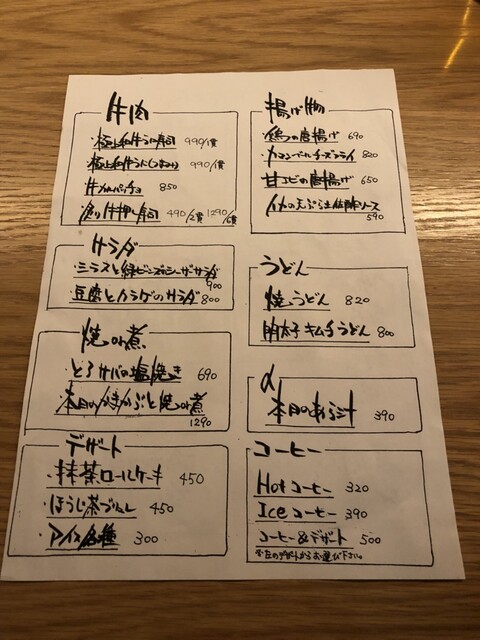 牛肉
・極上和牛うに寿司 990/1貫
・極上和牛うに 990/1貫
・牛カルパッチョ 850
・炙り牛押し寿司 490/2貫 1290/6貫
サラダ
・シラスと緑ビーンズのシーザーサラダ
900
・豆腐とカラゲのサラダ 800
焼、煮
・とろサバの塩焼き 690
・本日の かぶと焼 or 煮
1290
デザート
・抹茶ロールケーキ 450
・ほうじ茶プリン 450
・アイス各種 300
揚げ物
・鶏の唐揚げ 690
・カマンベールチーズフライ 820
・甘エビの唐揚げ 650
・イカの天ぷら 土佐酢ソース
590
うどん
・焼うどん 820
・明太子キムチうどん 800
α
・本日のあら汁 390
コーヒー
Hotコーヒー 320
Iceコーヒー 390
コーヒー&デザート 500
※左のデザートからお選び下さい。